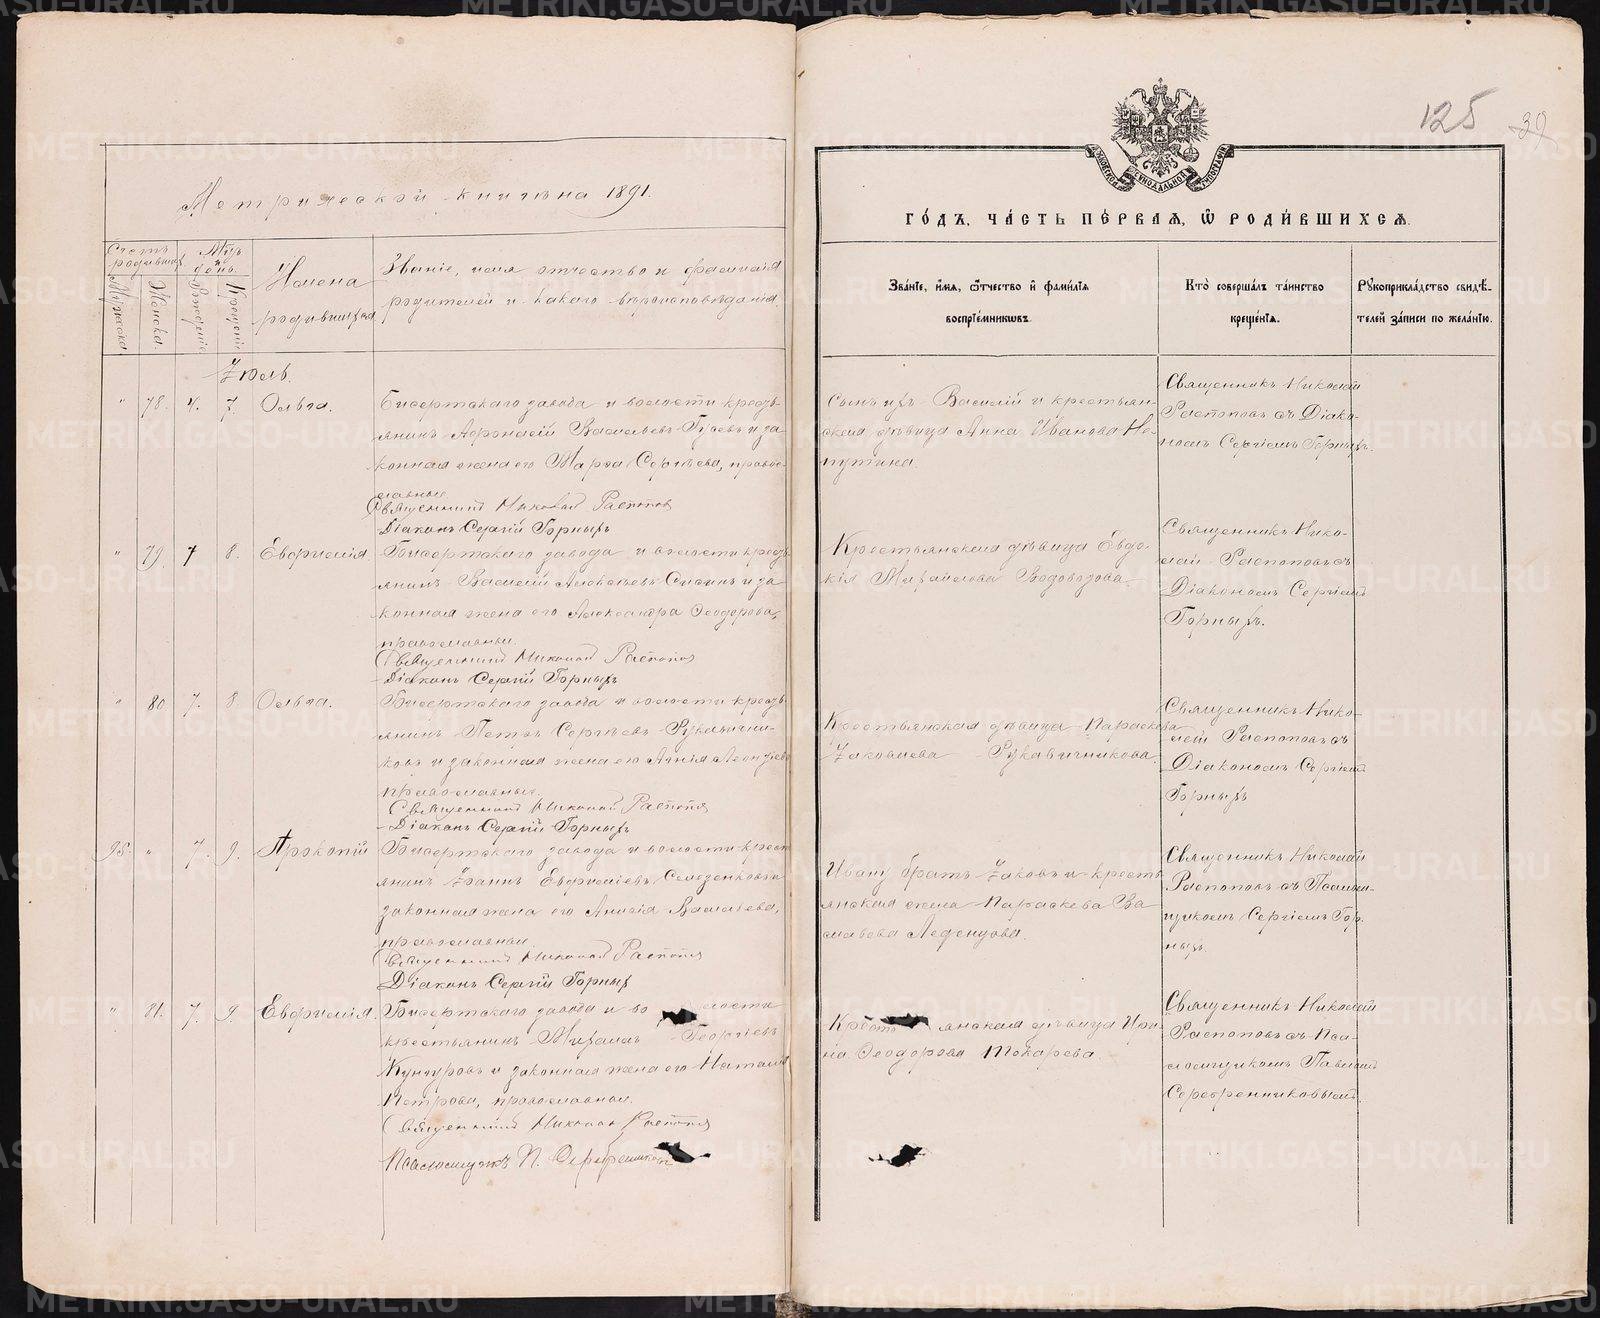 METRIKI.GASO-URAL.RU
Метрической книги на 1891.
Счетъ родившихся
Мѣц. и день.
Имена родившихся
Званіе, имя отчество и фамилія
родителей и какого вѣроисповѣданія
Мужеска
Женска
Рожденіе
Крещеніе
Іюль.
" 78. 4. 7. Ольга.
Бисертскаго завода и волости кресть-
янинъ Афонасій Васильевъ Гусевъ и за-
конная жена его Марѳа Сергѣева, право-
славные.
Священникъ Николай Распоповъ
Діаконъ Сергій Горныхъ
" 79. 7 8. Евфимія.
Бисертскаго завода и волости кресть-
янинъ Василій Алексѣевъ и за-
конная жена его Александра Ѳеодорова,
православные.
Священникъ Николай Распоповъ
Діаконъ Сергій Горныхъ
" 80 7. 8 Ольга.
Бисертскаго завода и волости кресть-
янинъ Петръ Сергѣевъ Рукавични-
ковъ и законная жена его Агнія
православные.
Священникъ Николай Распоповъ
Діаконъ Сергій Горныхъ
95. " 7. 9. Прокопій
Бисертскаго завода и волости крест-
янинъ Іоаннъ Евфиміевъ Селезенковъ и
законная жена его Анисія Васильева,
православныи.
Священникъ Николай Распоповъ
Діаконъ Сергій Горныхъ
" 81. 7. 9. Евфимія.
Бисертскаго завода и волости
крестьянинъ Михаилъ Георгіевъ
Кунгуровъ и законная жена его Наталія
Петрова, православныи.
Священникъ Николай Распоповъ
Псаломщикъ П. Серебренниковъ
125
39
МОСКОВСКОЙ СУНОДАЛЬНОЙ ТИПОГРАФІИ
ГО́ДЪ, ЧА́СТЬ ПЕ́РВАѦ, Ѽ РОДИ́ВШИХСѦ.
Зва́ніе, и́мѧ, ѻ҆́тчество и҆ фами́лїѧ
воспріе́мниковъ.
Кто̀ соверша́лъ та́инство
креще́нїѧ.
Рꙋкоприкла́дство свидѣ́-
телей за́писи по жела́нїю.
Сынъ ихъ Василій и крестьян-
ская дѣвица Анна Иванова Не-
путина.
Священникъ Николай
Распоповъ съ Діако-
номъ Сергіемъ Горныхъ.
Крестьянская дѣвица Евдо-
кія Михайлова Водовозова.
Священникъ Нико-
лай Распоповъ съ
Діакономъ Сергіемъ
Горныхъ.
Крестьянская дѣвица Параскева
Іаковлева Рукавичникова.
Священникъ Нико-
лай Распоповъ съ
Діакономъ Сергіемъ
Горныхъ
Ивану братъ Іаковъ и кресть-
янская жена Параскева Ва-
сильева Леденцова.
Священникъ Николай
Распоповъ съ Псалом-
щикомъ Сергіемъ Гор-
ныхъ.
Крестьянская дѣвица Ири-
на Ѳеодорова Токарева
Священникъ Николай
Распоповъ съ Пса-
ломщикомъ Павломъ
Серебренниковымъ.